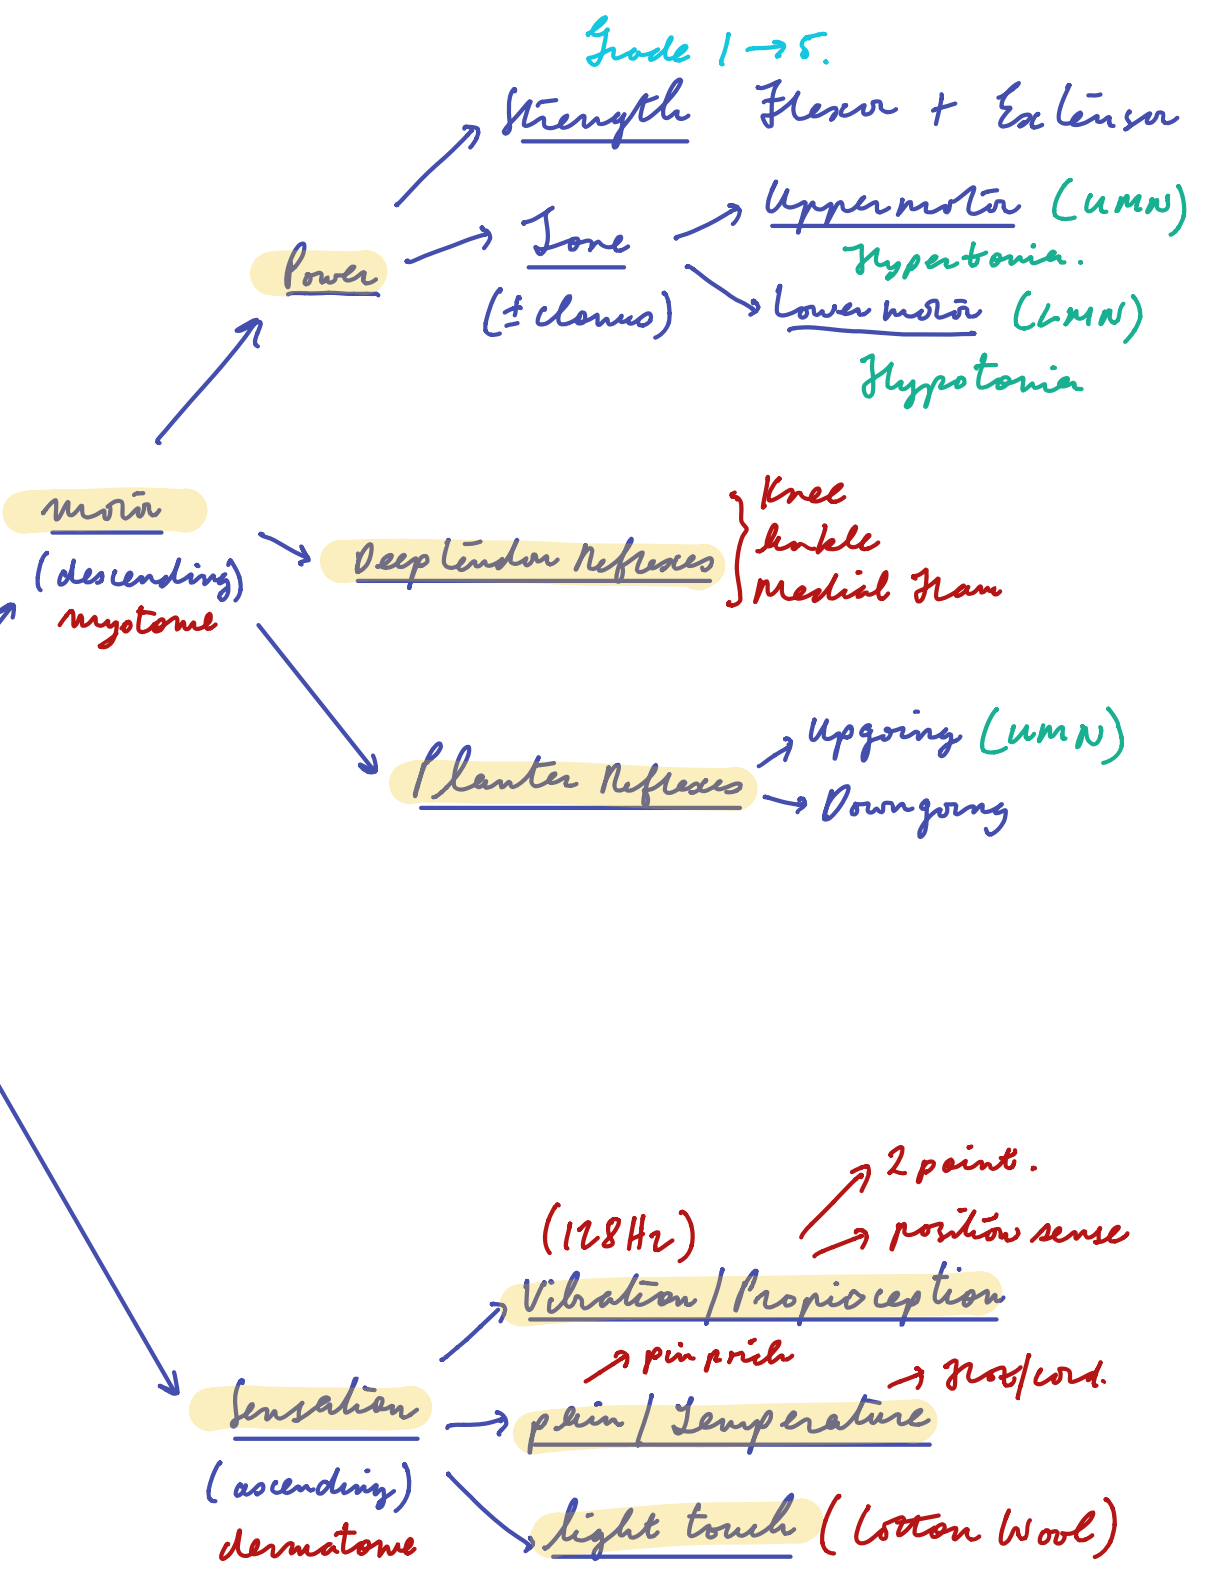 Grade 1 → 5.
Strength Flexor + Extensor
Power
Tone
(± clonus)
Upper motor (UMN)
Hypertonia.
Lower motor (LMN)
Hypotonia
Motor
(descending)
myotome
Deep tendon Reflexes
Knee
Ankle
Medial Ham
Planter Reflexes
Upgoing (UMN)
Downgoing
Sensation
(ascending)
dermatome
(128Hz)
2 point.
position sense
Vibration / Proprioception
pin prick
Hot/cold.
pain / Temperature
light touch (Cotton Wool)